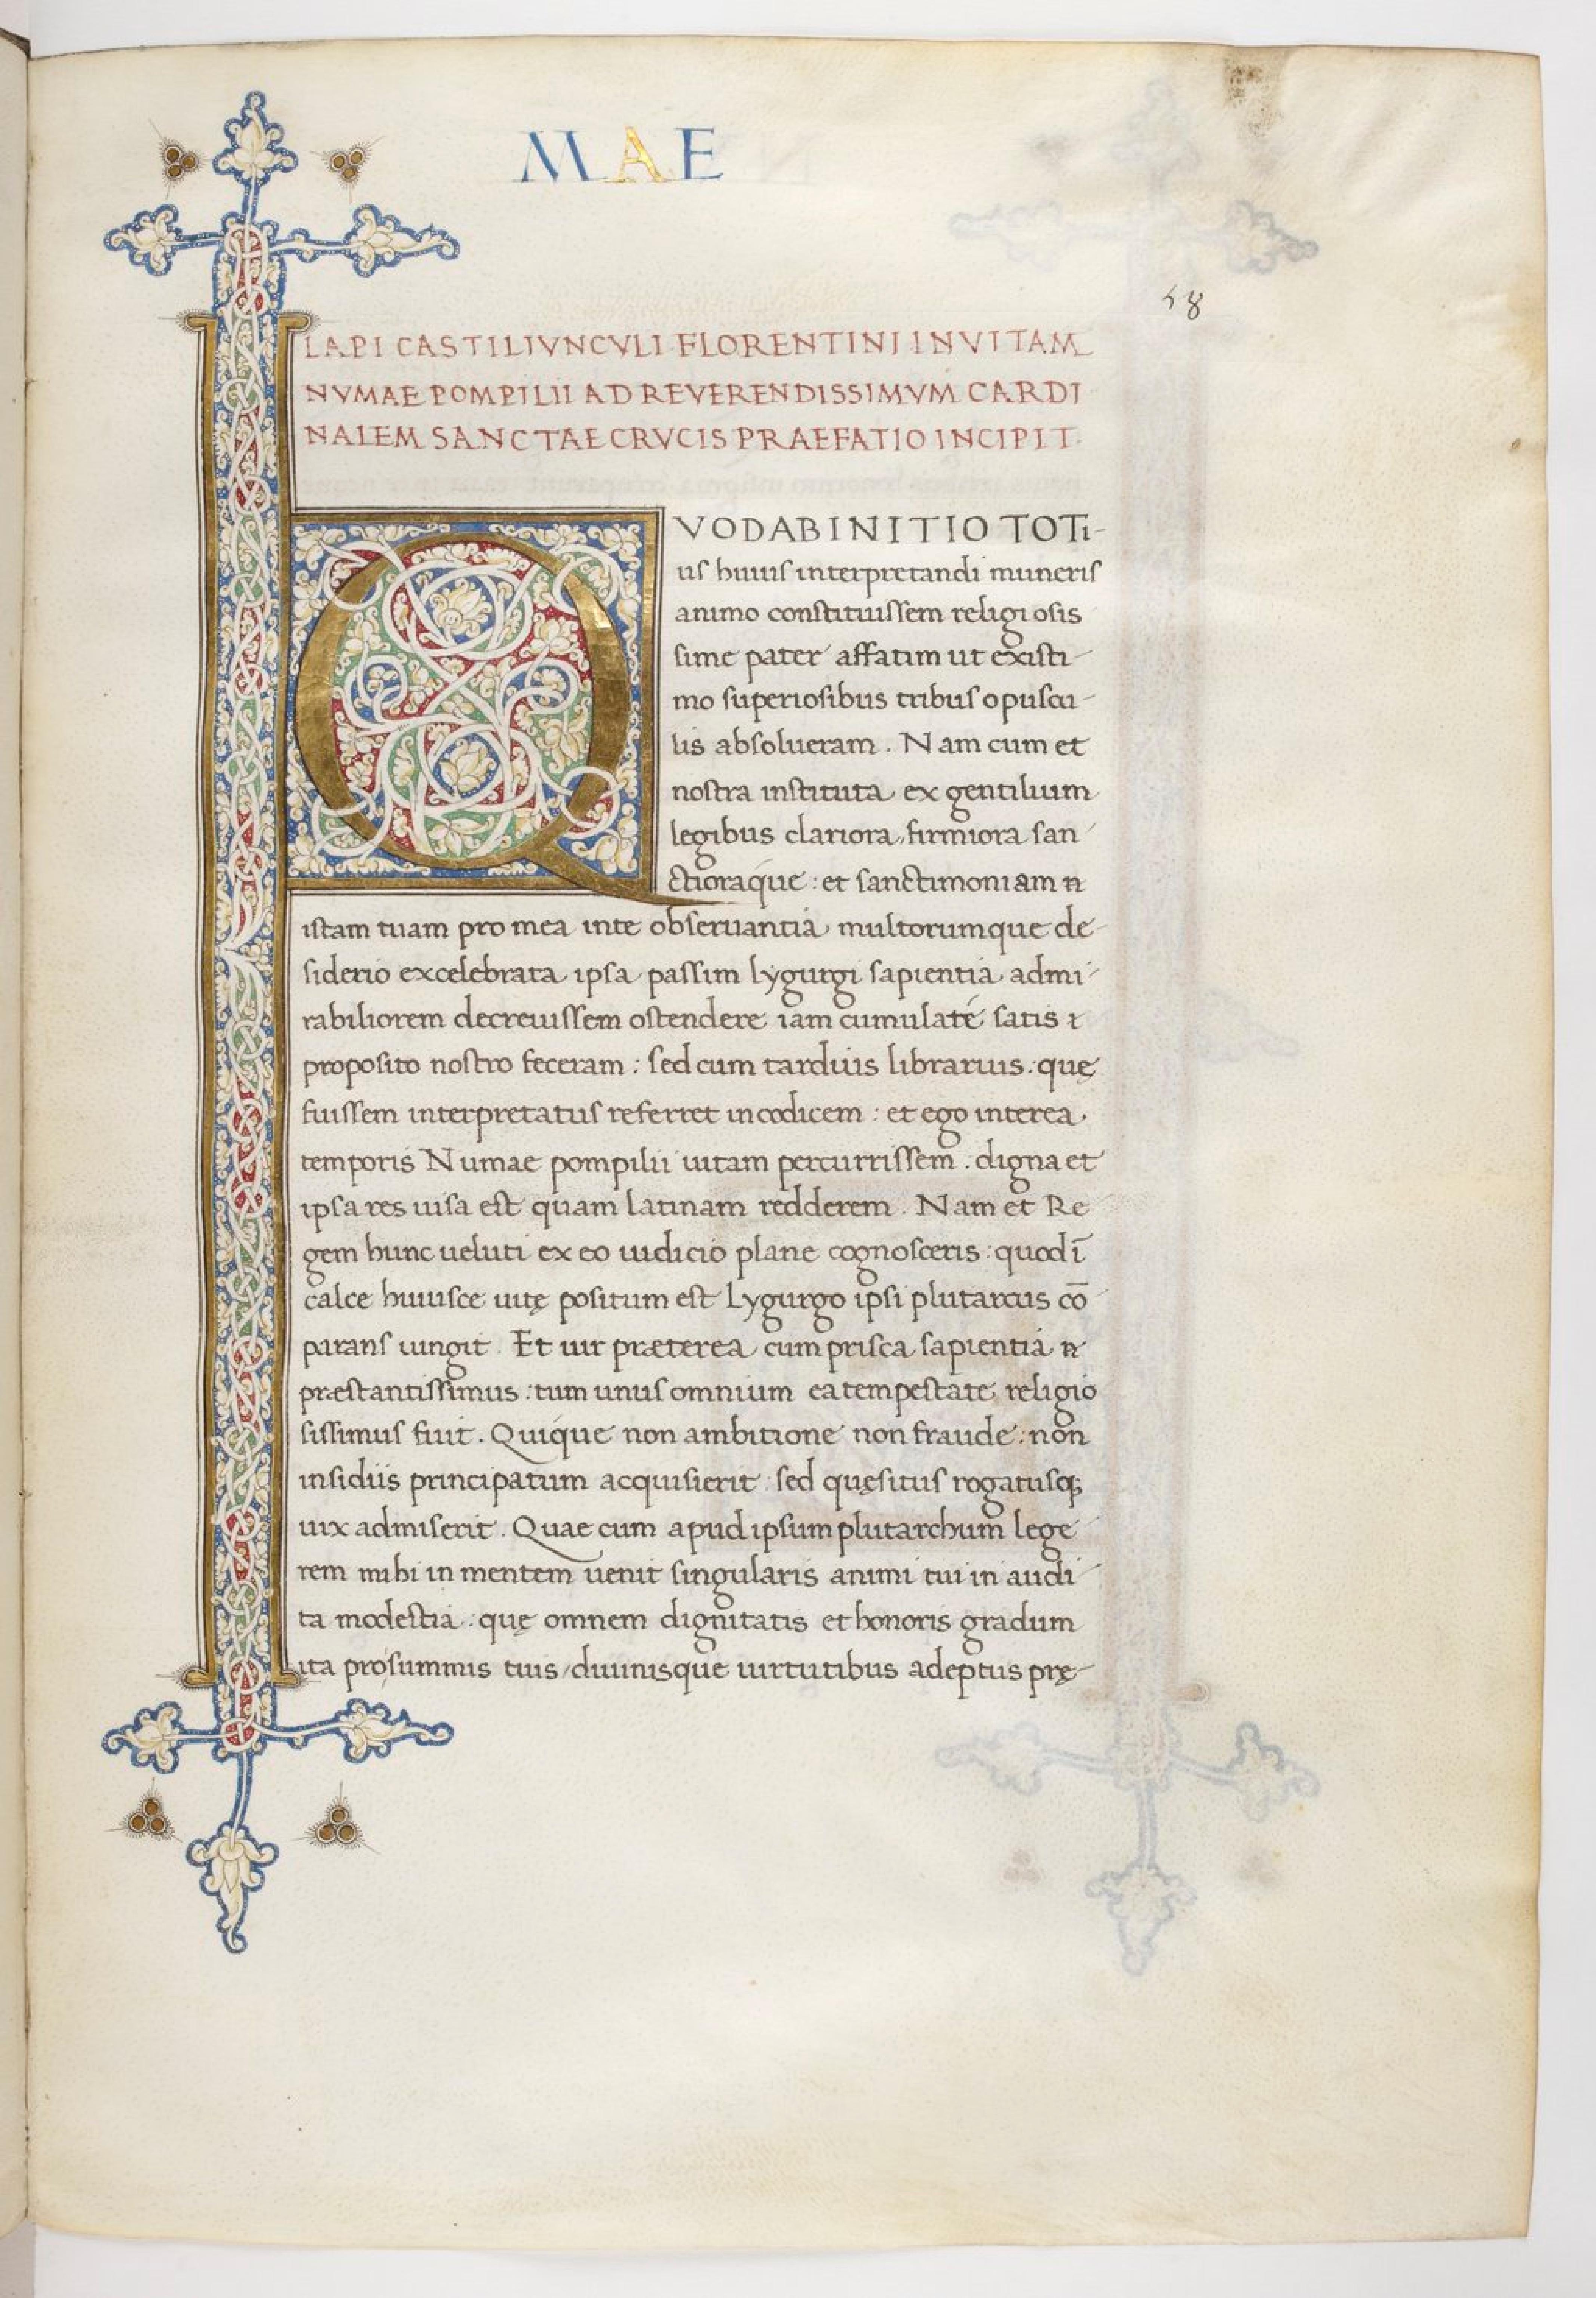 MAE
58
LAPI CASTILIVNCVLI FLORENTINI IN VITAM
NVMAE POMPILII AD REVERENDISSIMVM CARDI
NALEM SANCTAE CRVCIS PRAEFATIO INCIPIT.
QVOD AB INITIO TOTi-
us huius interpretandi muneris
animo constituissem religiosis
sime pater affatim ut existi-
mo superiosibus tribus opuscu-
lis absolueram. Nam cum et
nostra instituta ex gentilium
legibus clariora, firmiora san
ctioraque: et sanctimoniam
istam tuam pro mea inte obseruantia multorumque de-
siderio excelebrata ipsa passim lygurgi sapientia admi-
rabiliorem decreuissem ostendere iam cumulate satis &
proposito nostro feceram: sed cum tardius librarius: quę
fuissem interpretatus referret in codicem: et ego interea
temporis Numae pompilii uitam percurrissem: digna et
ipsa res uisa est quam latinam redderem. Nam et Re
gem hunc ueluti ex eo iudicio plane cognosceris: quod ī
calce huiusce uitę positum est lygurgo ipsi plutarcus cō
parans iungit. Et uir præterea cum prisca sapientia
præstantissimus: tum unus omnium ea tempestate religio
sissimus fuit. Quique non ambitione non fraude: non
insidiis principatum acquisierit: sed quęsitus rogatusq;
uix admiserit. Quae cum apud ipsum plutarchum lege
rem mihi in mentem uenit singularis animi tui in audi
ta modestia: quę omnem dignitatis et honoris gradum
ita pro summis tuis, diuinisque uirtutibus adeptus prę-